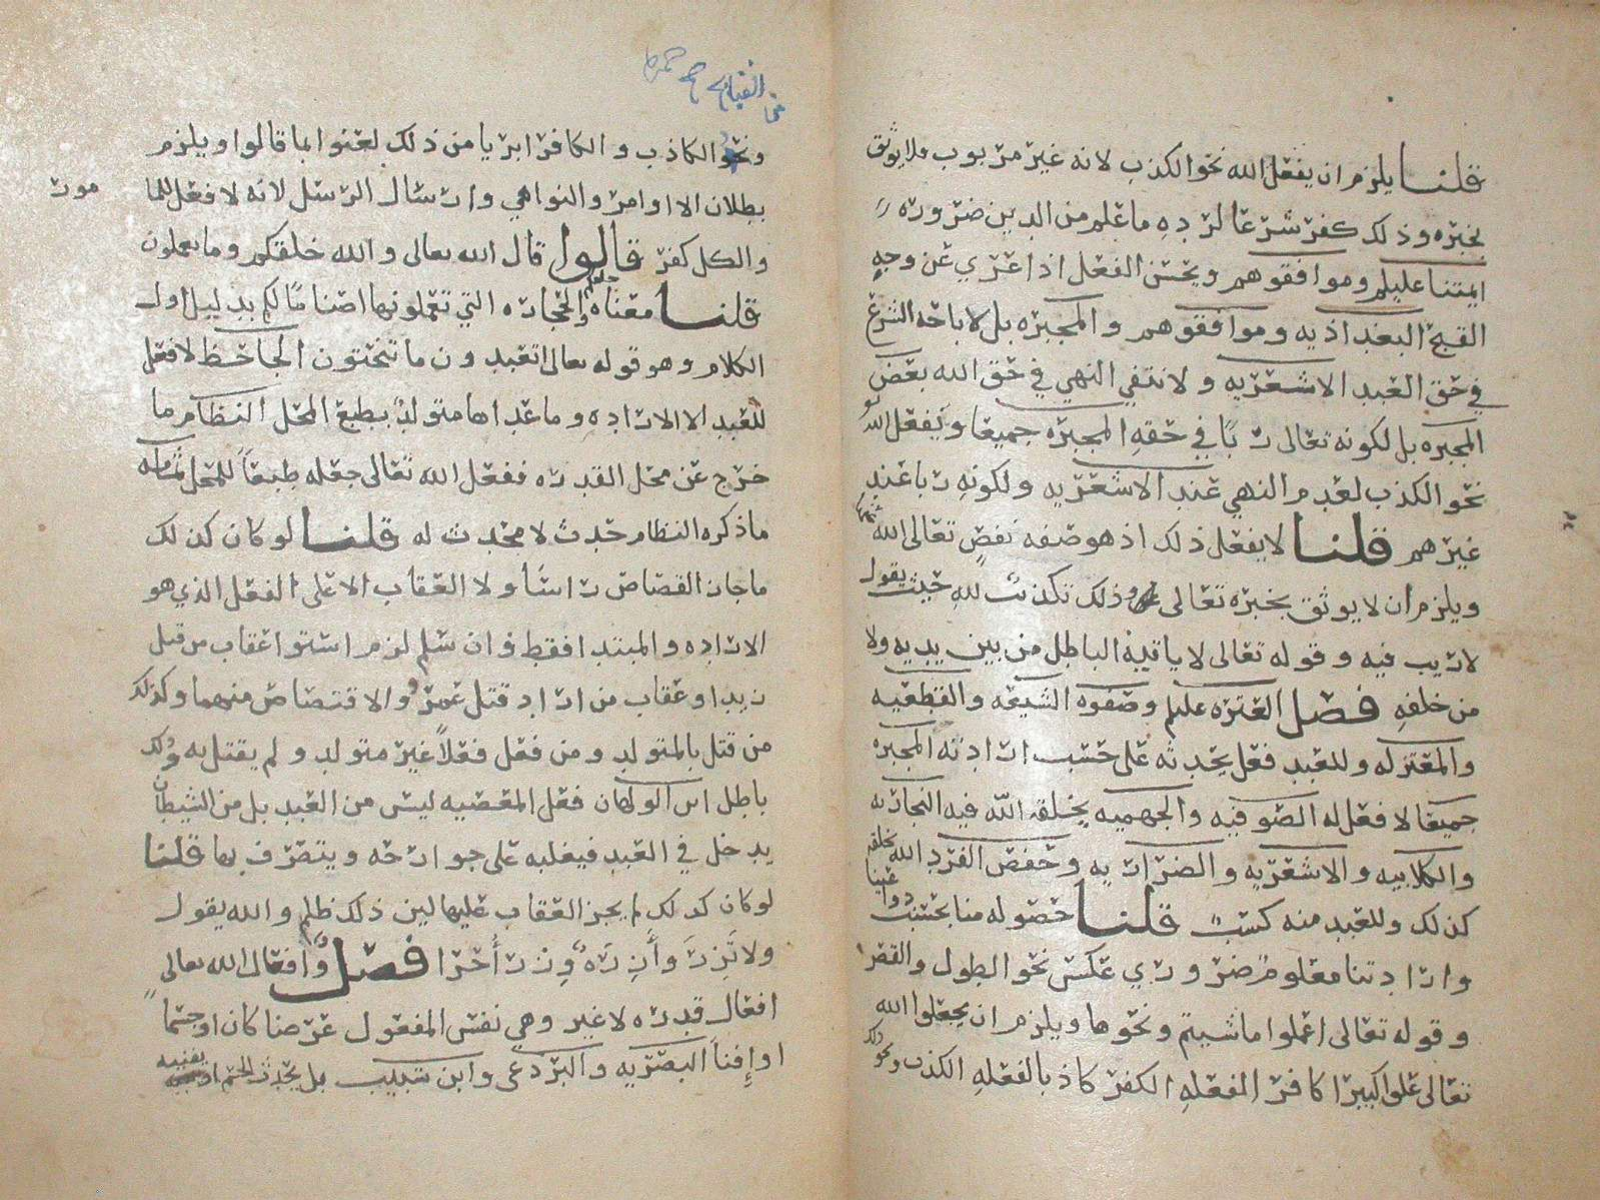 قلنا يلزم ان يفعل الله نحو الكذب لانه غير مربوب ولا يوثق
بخبره وذلك كفر شرعا لرده ما علم من الدين ضروره
ايمتنا عليلم وموافقوهم ويحسن الفعل اذا عري عن وجه
القبح البغداذيه وموافقوهم والمجبره بل لاباحه الشرع
في حق العبد الاشعريه ولانتفي النهي في حق الله بعض
المجبره بل لكونه تعالى ربا في حقه المجبره جميعا ويفعل الله
نحو الكذب لعدم النهي عند الاشعريه ولكونه ربا عند
غيرهم قلنا لا يفعل ذلك اذ هو صفه نقص تعالى الله عنها
ويلزم ان لا يوثق بخبره تعالى وذلك تكذيب لله حيث يقول
لا ريب فيه وقوله تعالى لا ياتيه الباطل من بين يديه ولا
من خلفه فصل العتره عليلم وصفوه الشيعه والقطعيه
والمعتزله وللعبد فعل يحدثه على حسب ارادته المجبره
جميعا لا فعل له الصوفيه والجهميه يخلقه الله فيه النجاريه
والكلابيه والاشعريه والضراريه وحفص الفرد الله يخلقه
كذلك وللعبد منه كسب قلنا حصوله منا بحسب دواعينا
وارادتنا معلوم ضروري عكس نحو الطول والقصر
وقوله تعالى اعملوا ماشيتم ونحوها ويلزم ان يجعلوا الله
تعالى علوا كبيرا كافر المفعله الكفر كاذ بالفعله الكذب ونحو ذلك
من القبايح
ونحو الكاذب والكافر ابريا من ذلك لعنوا بما قالوا ويلزم
بطلان الاوامر والنواهي وارسال الرسل لانه لا فعل للما
مور
والكل كفر قالوا قال الله تعالى والله خلقكم وما تعملون
قلنا معناه والحجاره التي تعملونها اصناما لكم بدليل اول
الكلام وهو قوله تعالى اتعبدون ما تنحتون الجاحظ لا فعل
للعبد الا الاراده وما عداها متولد بطبع المحل النظام ما
خرج عن محل القدره ففعل الله تعالى جعله طبعا للمحل ثمامه
ما ذكره النظام حدث لا محدث له قلنا لو كان كذلك
ما جاز القصاص راسا ولا العقاب الا على الفعل الذي هو
الاراده والمبتدا فقط وان سلم لزم استوا عقاب من قتل
زيدا وعقاب من اراد قتل عمرو والاقتصاص منهما وكذلك
من قتل بالمتولد ومن فعل فعلا غير متولد ولم يقتل به وذلك
باطل ابن الولهان فعل المعصيه ليس من العبد بل من الشيطان
يدخل في العبد فيغلبه على جوارحه ويتصرف بها قلنا
لو كان كذلك لم يجز العقاب عليها لين ذلك ظلم والله يقول
ولا تزر وازره وزر اخرا فصل وافعال الله تعالى
افعال قدره لا غير وهي نفس المفعول عرضا كان او جسما
او افنا البصريه والبردعي وابن شبيب بل يحدث الجسم او يفنيه